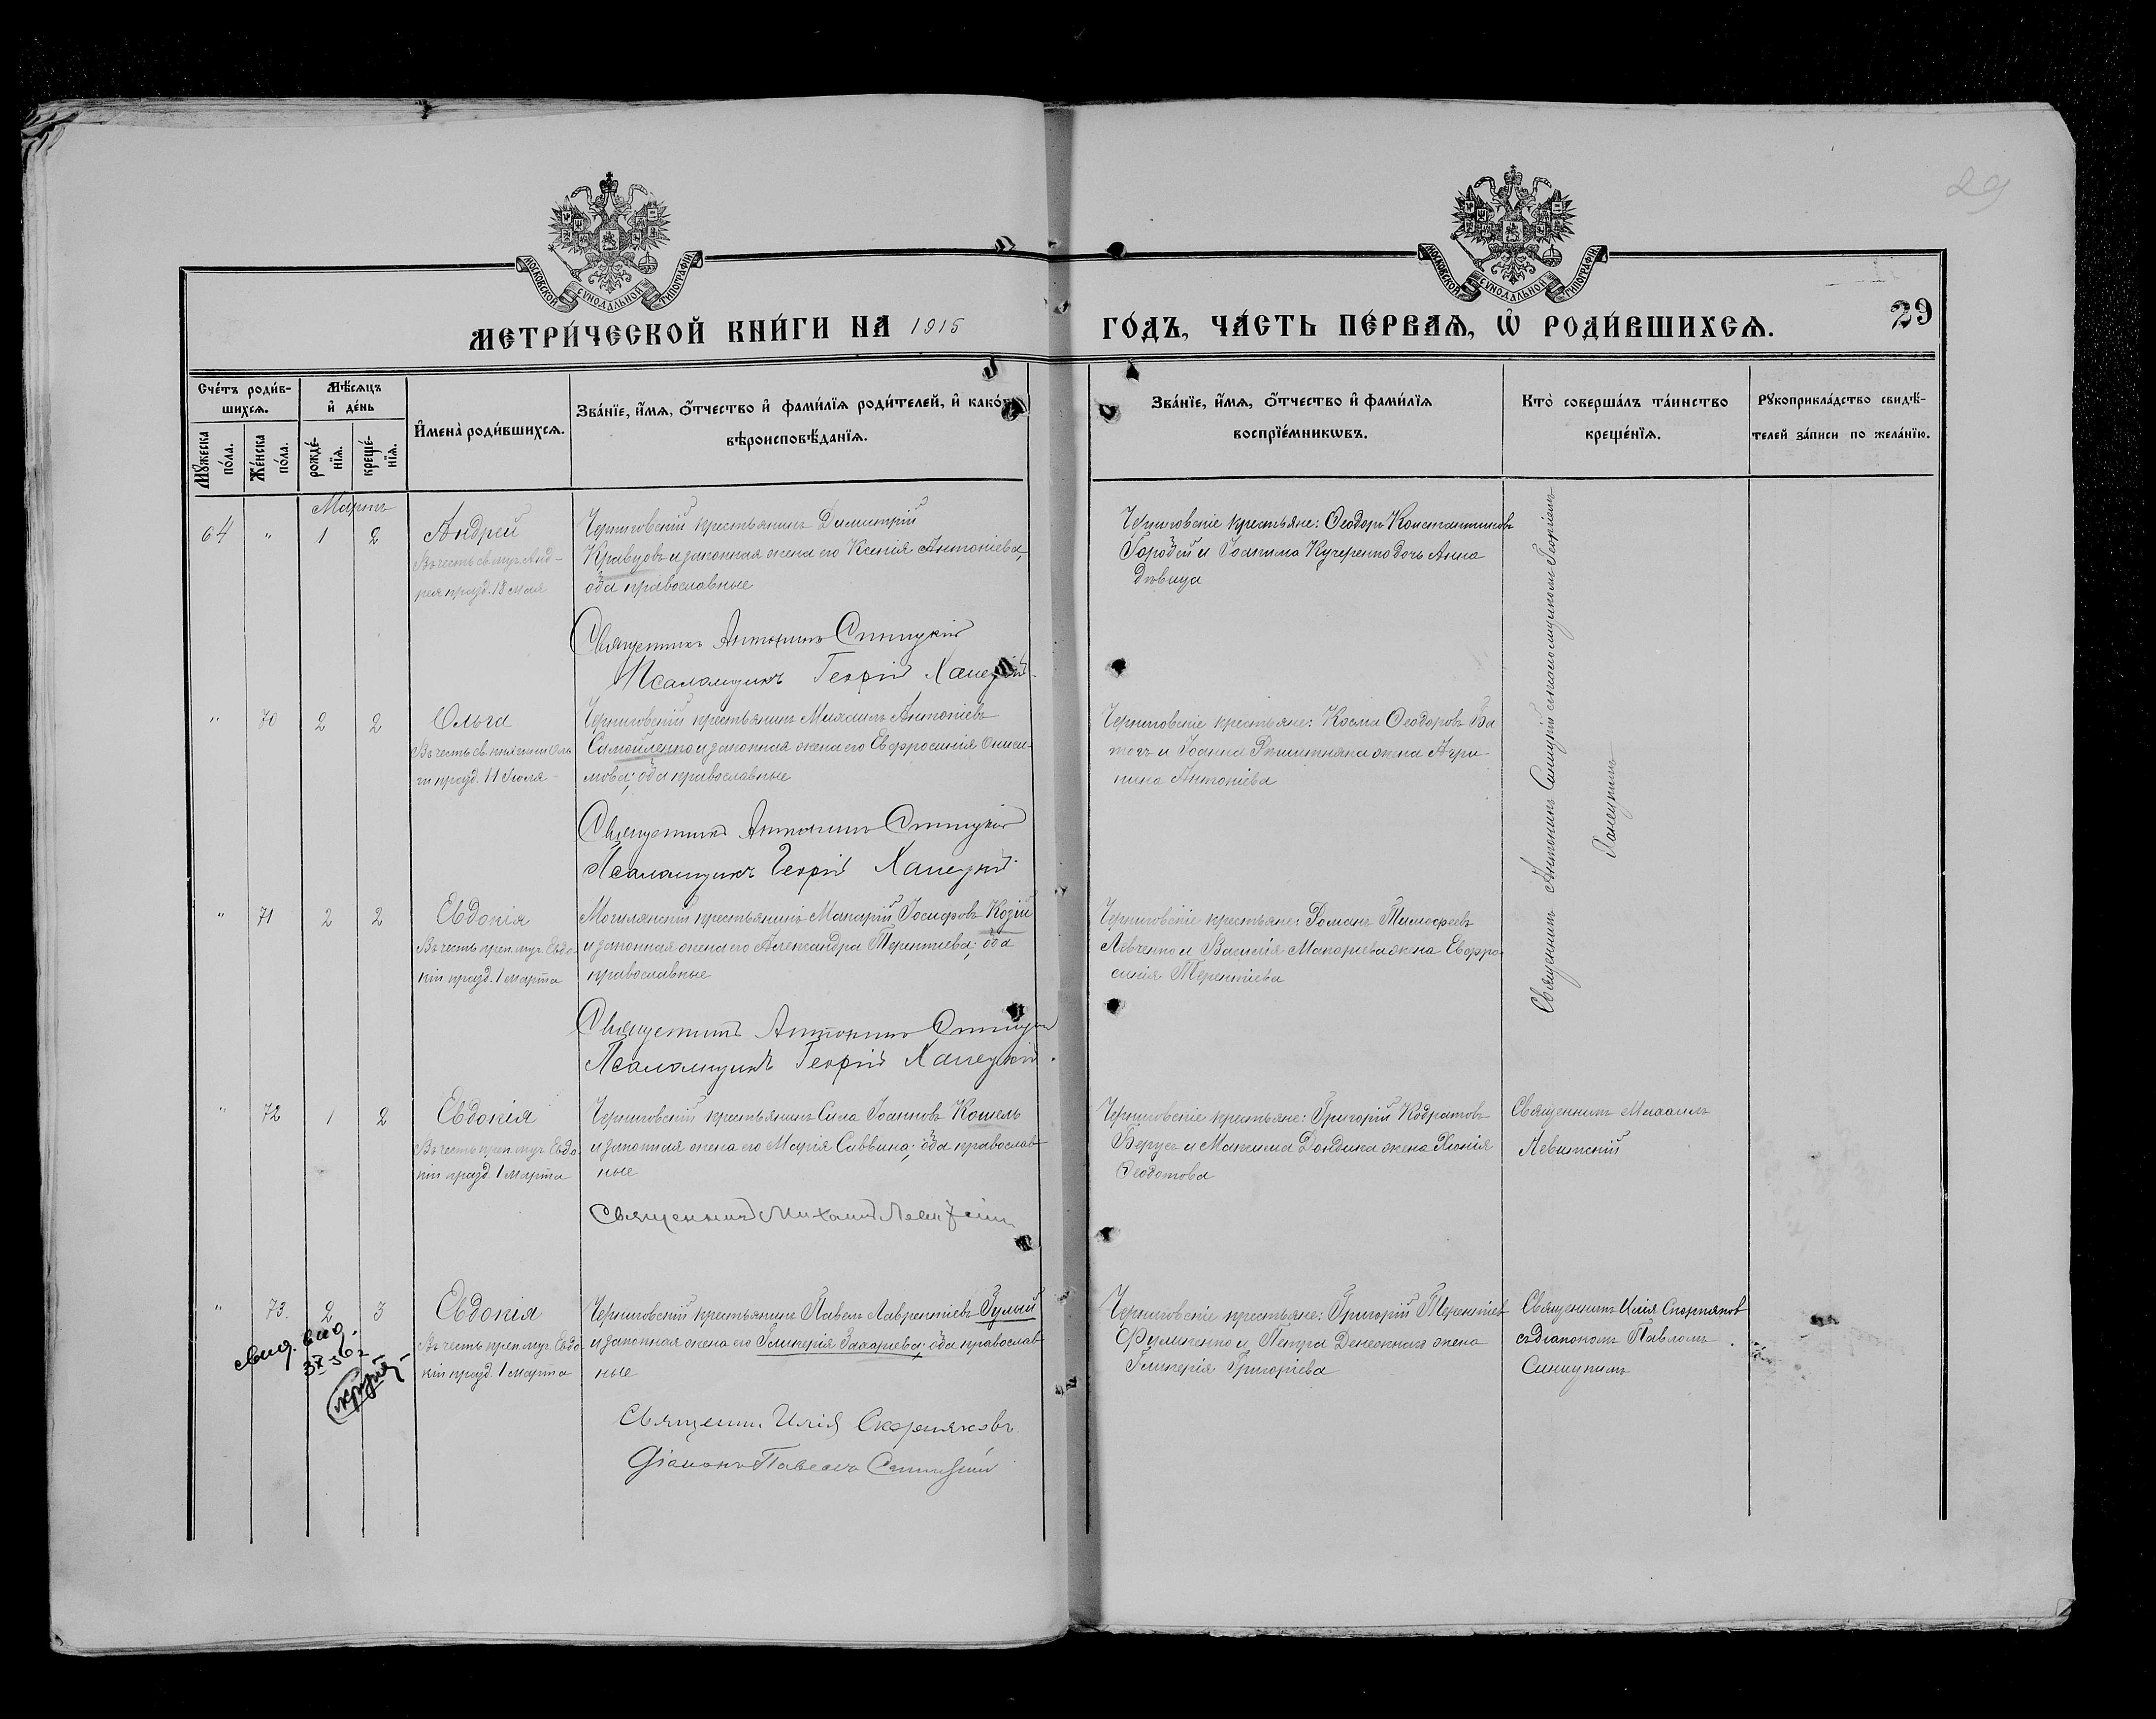 29
МОСКОВСКОЙ СѴНОДАЛЬНОЙ ТИПОГРАФІИ
МОСКОВСКОЙ СѴНОДАЛЬНОЙ ТИПОГРАФІИ
МЕТРИ́ЧЕСКОЙ КНИ́ГИ НА 1915
ГО́ДЪ, ЧА́СТЬ ПЕ́РВАѦ, Ѡ РОДИ́ВШИХСѦ.
29
Сче́тъ роди́в-
шихсѧ.
Мꙋжеска
по́ла.
Же́нска
по́ла.
Мѣ́сѧцъ
и҆ де́нь
рожде́-
нїѧ.
креще́-
нїѧ.
И҆мена̀ роди́вшихсѧ.
Зва́нїе, и҆́мѧ, ѻ҆́тчество и҆ фами́лїѧ роди́телей, и҆ како́гѡ
вѣроисповѣ́данїѧ.
Зва́нїе, и҆́мѧ, ѻ҆́тчество и҆ фами́лїѧ
воспрїе́мникѡвъ.
Кто̀ соверша́лъ та́инство
креще́нїѧ.
Рꙋкоприкла́дство свидѣ́-
телей за́писи по жела́нїю.
Мартъ
64 " 1 2
Андрей
Въ честь св. муч. Анд-
рея празд. 18 мая
Черниговскій крестьянинъ Димитрій
Кравцовъ и законная жена его Ксенія Антоніева,
оба православные
Священникъ Антонинъ Синицкій
Псаломщикъ Георгій Ханецкій
Черниговскіе крестьяне: Ѳеодоръ Константиновъ
и Іоакима Кучеренко дочь Анна
Дѣвица
Священникъ Антонинъ Синицкій съ псаломщикомъ Георгіемъ
Ханецкимъ
" 70 2 2
Ольга
Въ честь св. княгини Оль
ги празд. 11 Іюля
Черниговскій крестьянинъ Михаилъ Антоніевъ
Самойленко и законная жена его Евфросинія Ониси-
мова; оба православные
Священникъ Антонинъ Синицкій
Псаломщикъ Георгій Ханецкій
Черниговскіе крестьяне: Косма Ѳеодоровъ Ба
тогъ и Іоанна жена Агри-
пина Антоніева
" 71 2 2
Евдокія
Въ честь преп. муч. Евдо-
кіи празд. 1 марта
Могилянскій крестьянинъ Макарій Іосифовъ Козій
и законная жена его Александра Терентіева; оба
православные
Священникъ Антонинъ Синицкій
Псаломщикъ Георгій Ханецкій.
Черниговскіе крестьяне: Романъ Тимофеевъ
Левченко и Василія Макарьева жена Евфро-
синія Терентіева
" 72 1 2
Евдокія
Въ честь преп. муч. Евдо
кіи празд. 1 марта
Черниговскій крестьянинъ Сила Іоанновъ Кошель
и законная жена его Марія Саввина; оба православ-
ные
Священникъ Михаилъ Левитскій
Черниговскіе крестьяне: Григорій Кодратовъ
Берусъ и Максима Дондика жена Хіонія
Ѳеодотова
Священникъ Михаилъ
Левитскій
" 73. 2 3
Евдокія
Въ честь преп. муч. Евдо
кіи празд. 1 марта
свид. выд.
Черниговскій крестьянинъ Павелъ Лаврентіевъ Зулый
и законная жена его Гликерія Захаріева; оба православ
ные
Священн. Илія Скорняковъ
Діаконъ Павелъ Синицкій
Черниговскіе крестьяне: Григорій Терентіев
Фоменко и Петра жена
Гликерія Григоріева
Священникъ Илія Скорняков
съ діакономъ Павломъ
Синицкимъ